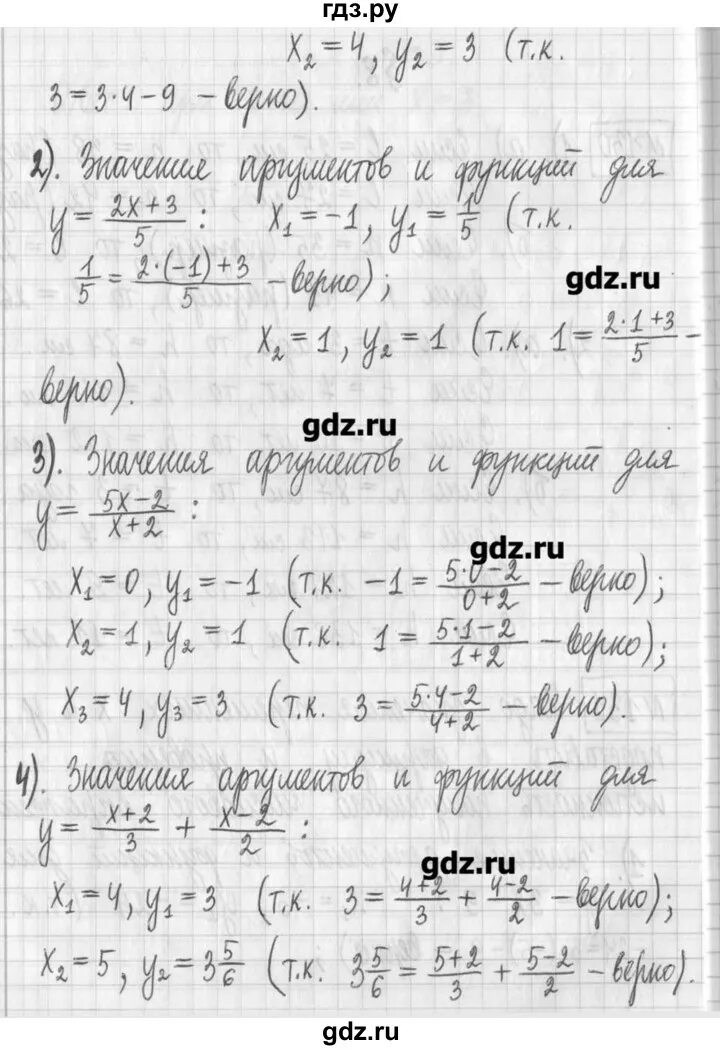 гдз.ру
x₂ = 4, y₂ = 3 (т.к.
3 = 3·4 – 9 – верно).
2). Значения аргументов и функций для
y = (2x + 3)/5 : x₁ = –1, y₁ = 1/5 (т.к.
1/5 = (2·(–1) + 3)/5 – верно);
gdz.ru
x₂ = 1, y₂ = 1 (т.к. 1 = (2·1 + 3)/5 –
верно).
gdz.ru
3). Значения аргументов и функций для
y = (5x – 2)/(x + 2) :
gdz.ru
x₁ = 0, y₁ = –1 (т.к. –1 = (5·0 – 2)/(0 + 2) – верно);
x₂ = 1, y₂ = 1 (т.к. 1 = (5·1 – 2)/(1 + 2) – верно);
x₃ = 4, y₃ = 3 (т.к. 3 = (5·4 – 2)/(4 + 2) – верно).
4). Значения аргументов и функций для
y = (x + 2)/3 + (x – 2)/2 :
gdz.ru
x₁ = 4, y₁ = 3 (т.к. 3 = (4 + 2)/3 + (4 – 2)/2 – верно);
x₂ = 5, y₂ = 3 5/6 (т.к. 3 5/6 = (5 + 2)/3 + (5 – 2)/2 – верно).
gdz.ru